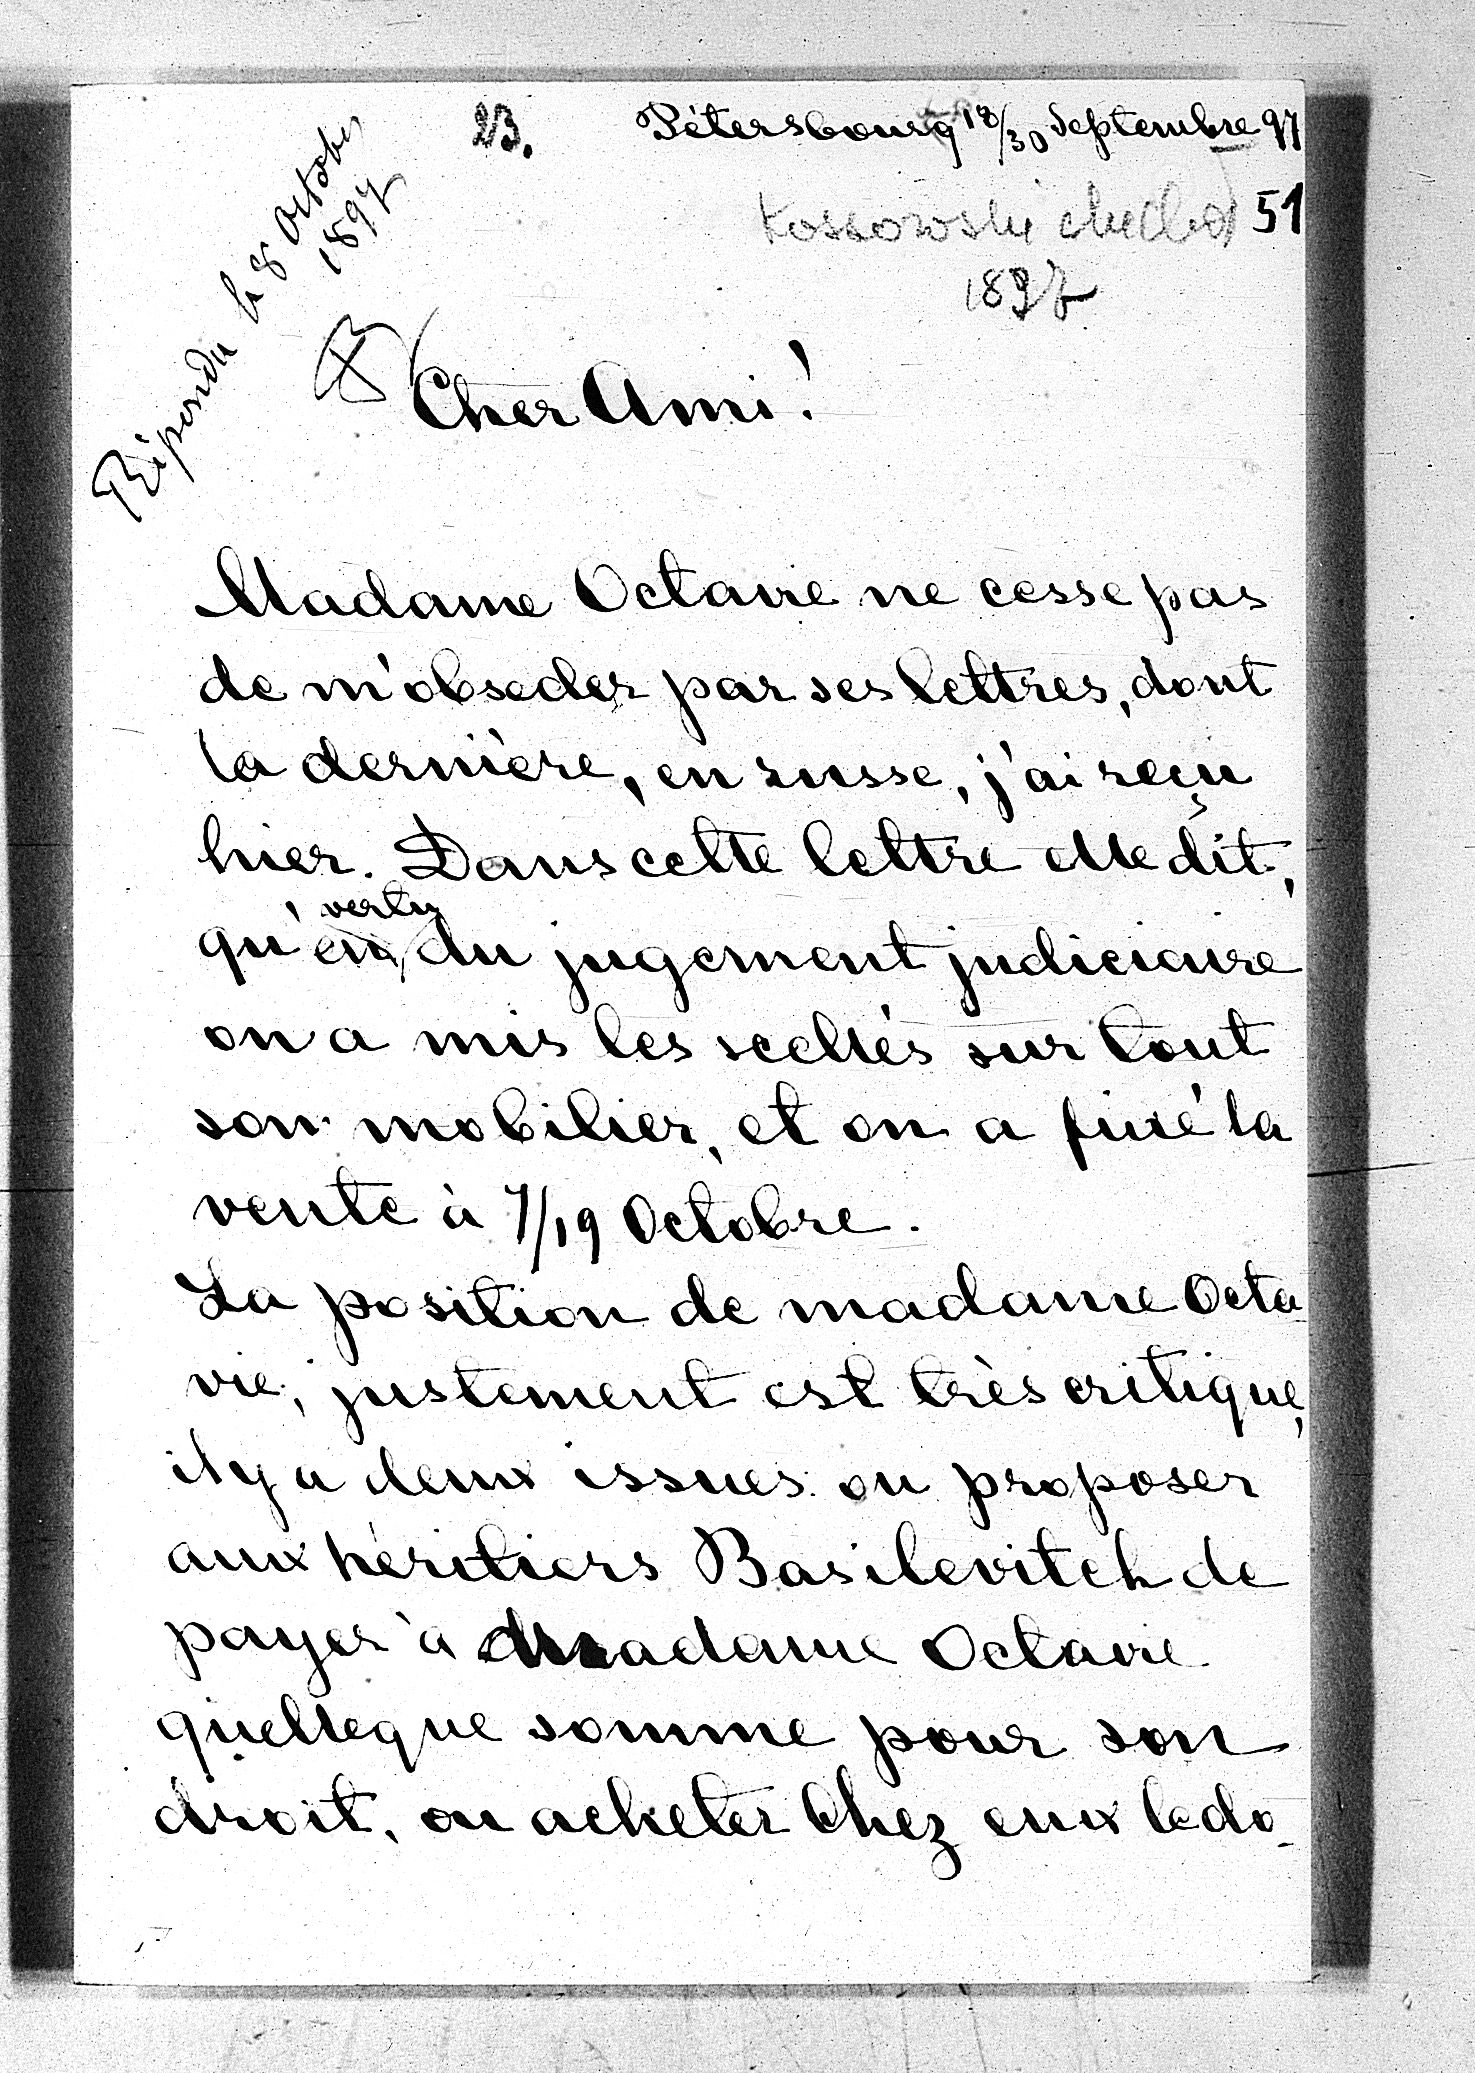 23. Pétersbourg 18/30 Septembre 97
Répondu le 8 Octobre
1897
Kossowski Michał 51
1897
Cher Ami!
Madame Octavie ne cesse pas
de m'obseder par ses lettres, dont
la dernière, en russe, j'ai reçu
hier. Dans cette lettre elle dit,
qu'en vertu du jugement judiciaire
on a mis les scellés sur tout
son mobilier, et on a fixé la
vente à 7/19 Octobre.
La position de madame Octa
vie, justement est très critique,
il y a deux issues: ou proposer
aux héritiers Basilevitch de
payer à Madame Octavie
quelleque somme pour son
droit, ou acheter chez eux le do-